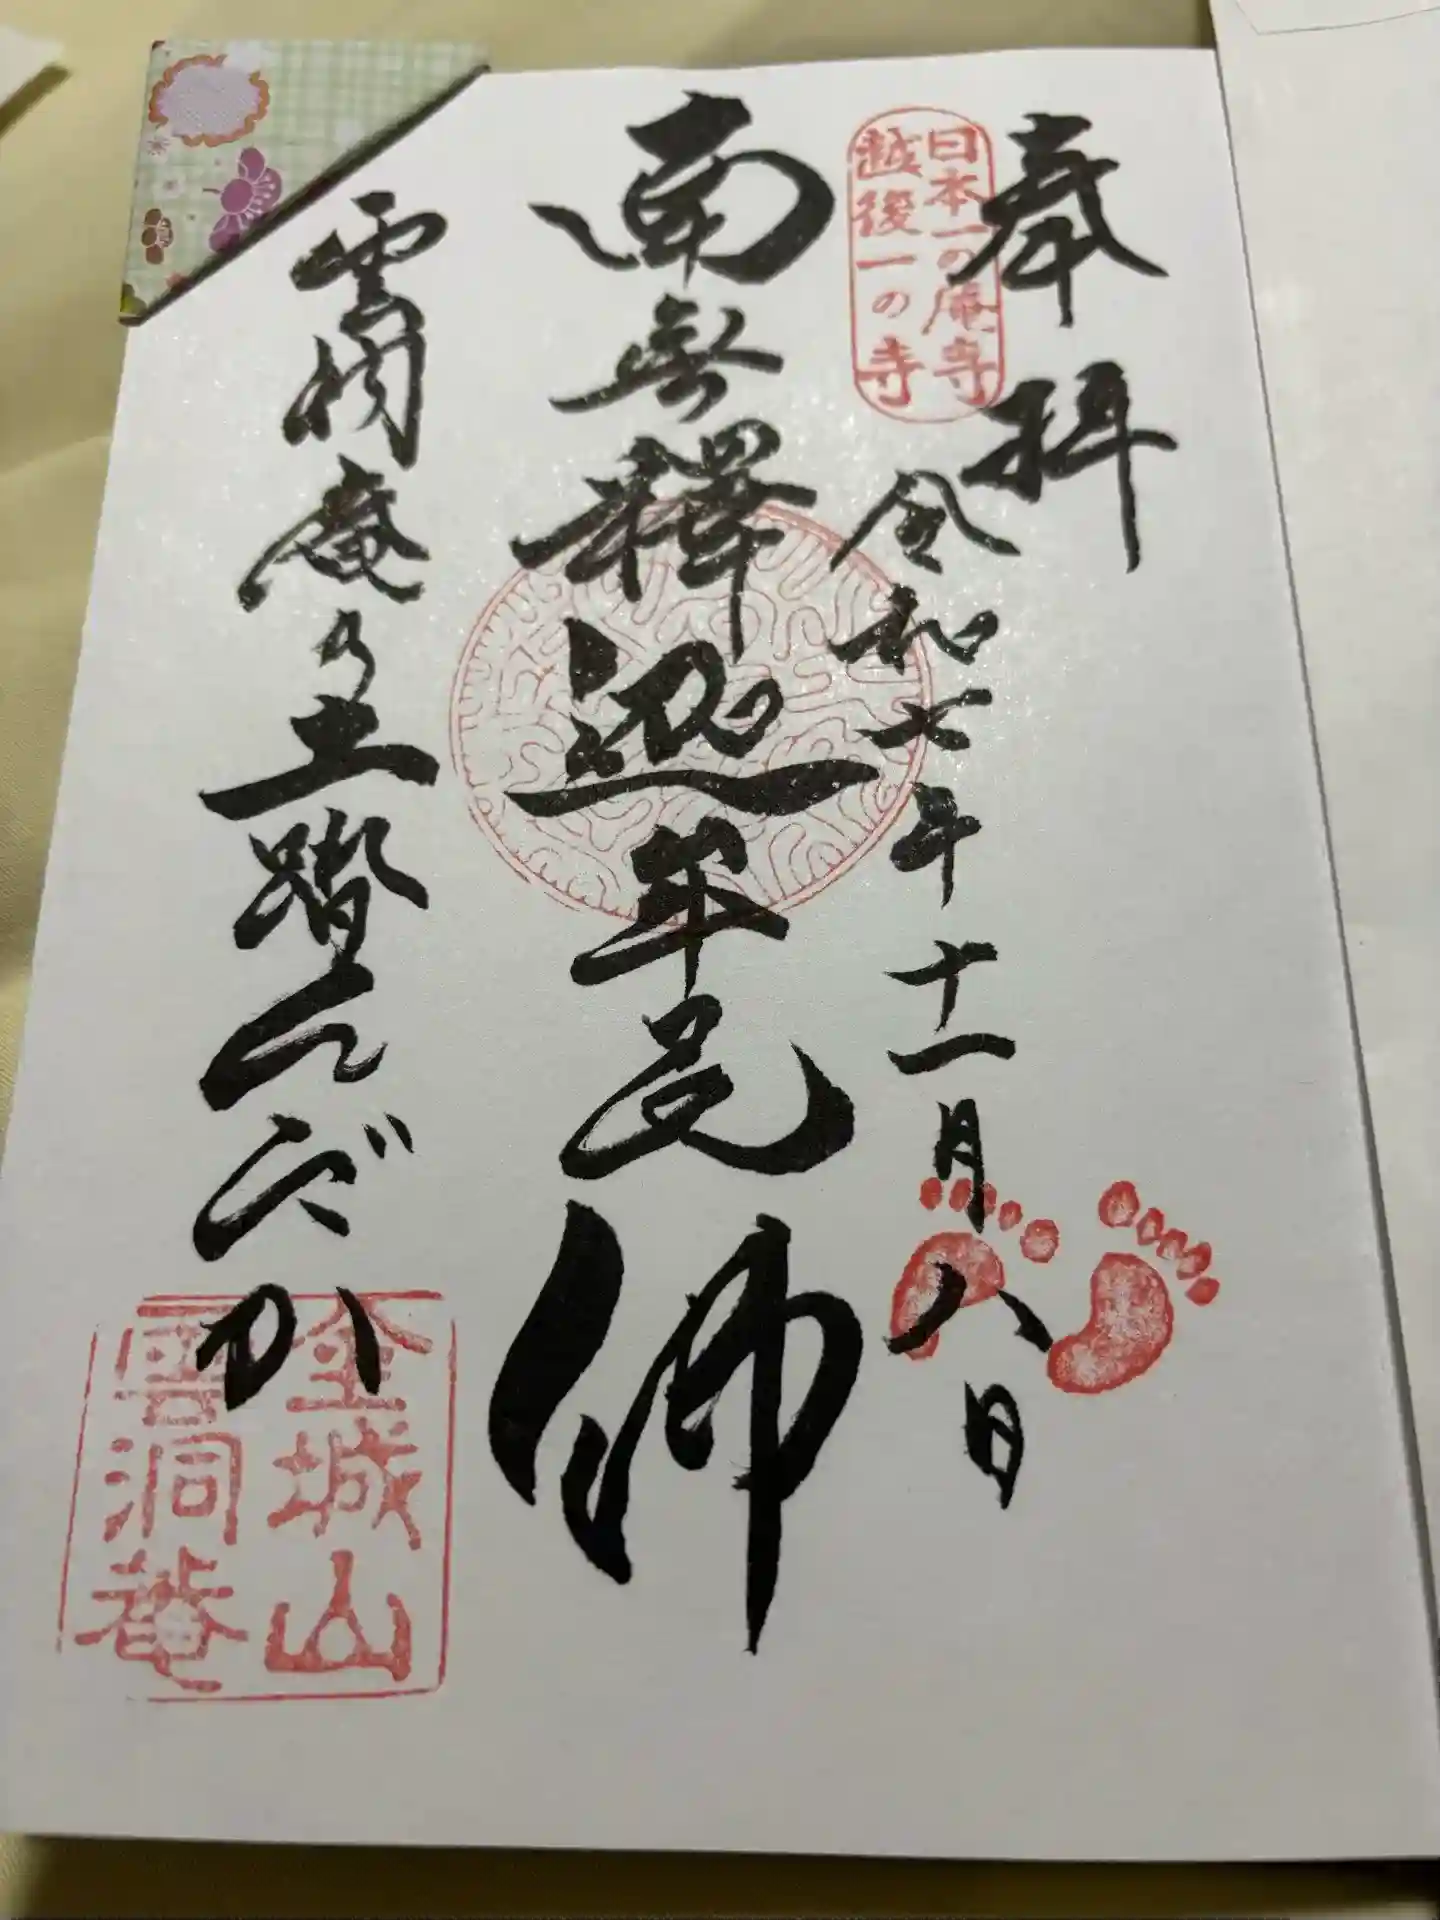 奉拝
日本一の庵寺
越後一の寺
令和七年十一月八日
南無釋迦牟尼佛
雲洞庵の土踏んだか
金城山
雲洞庵